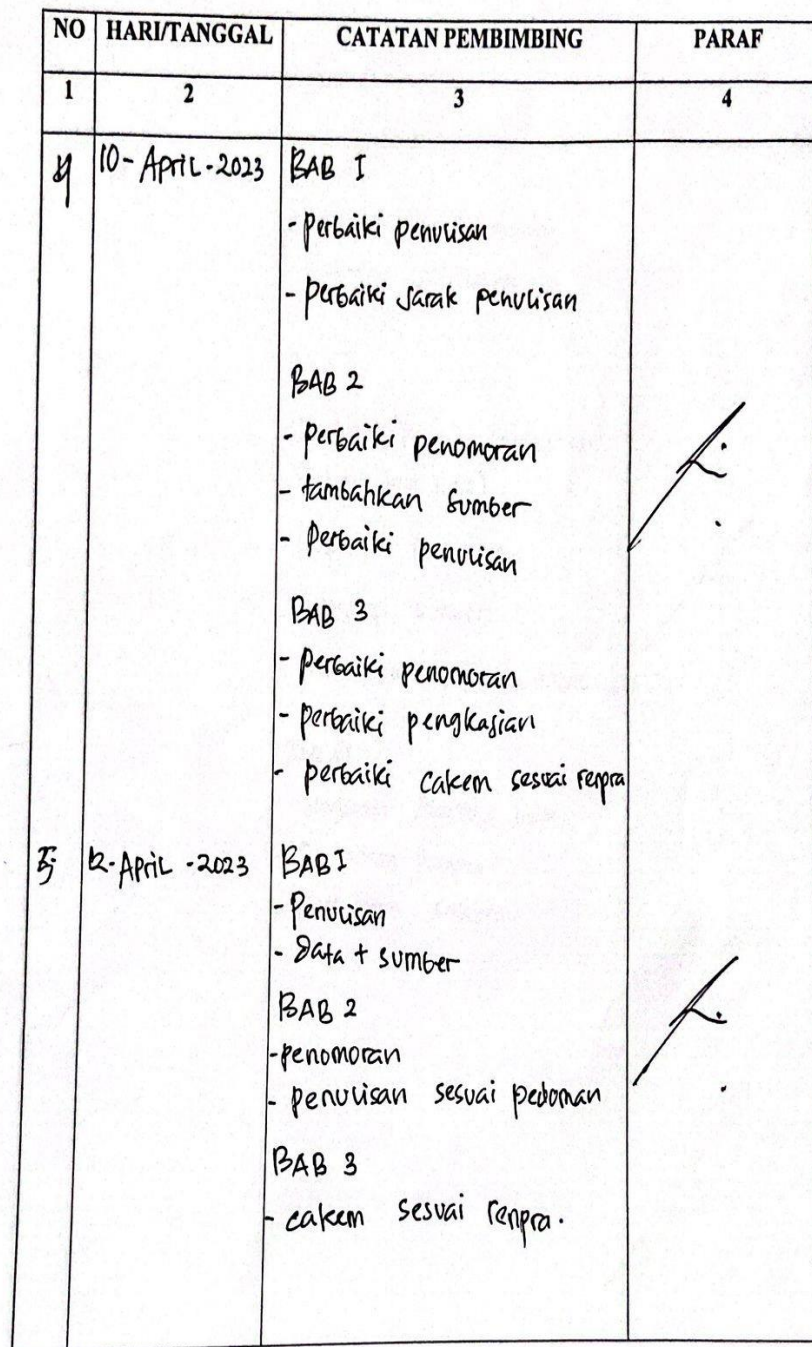 NO HARI/TANGGAL CATATAN PEMBIMBING PARAF
1 2 3 4
10-April-2023 BAB I
- perbaiki penulisan
- perbaiki Jarak penulisan
BAB 2
- perbaiki penomoran
- tambahkan sumber
- Perbaiki penulisan
BAB 3
- perbaiki penomoran
- perbaiki pengkajian
- perbaiki cakem sesuai renpra
12-April-2023 BAB I
- Penulisan
- Data + sumber
BAB 2
- penomoran
- penulisan sesuai pedoman
BAB 3
- cakem sesuai renpra.